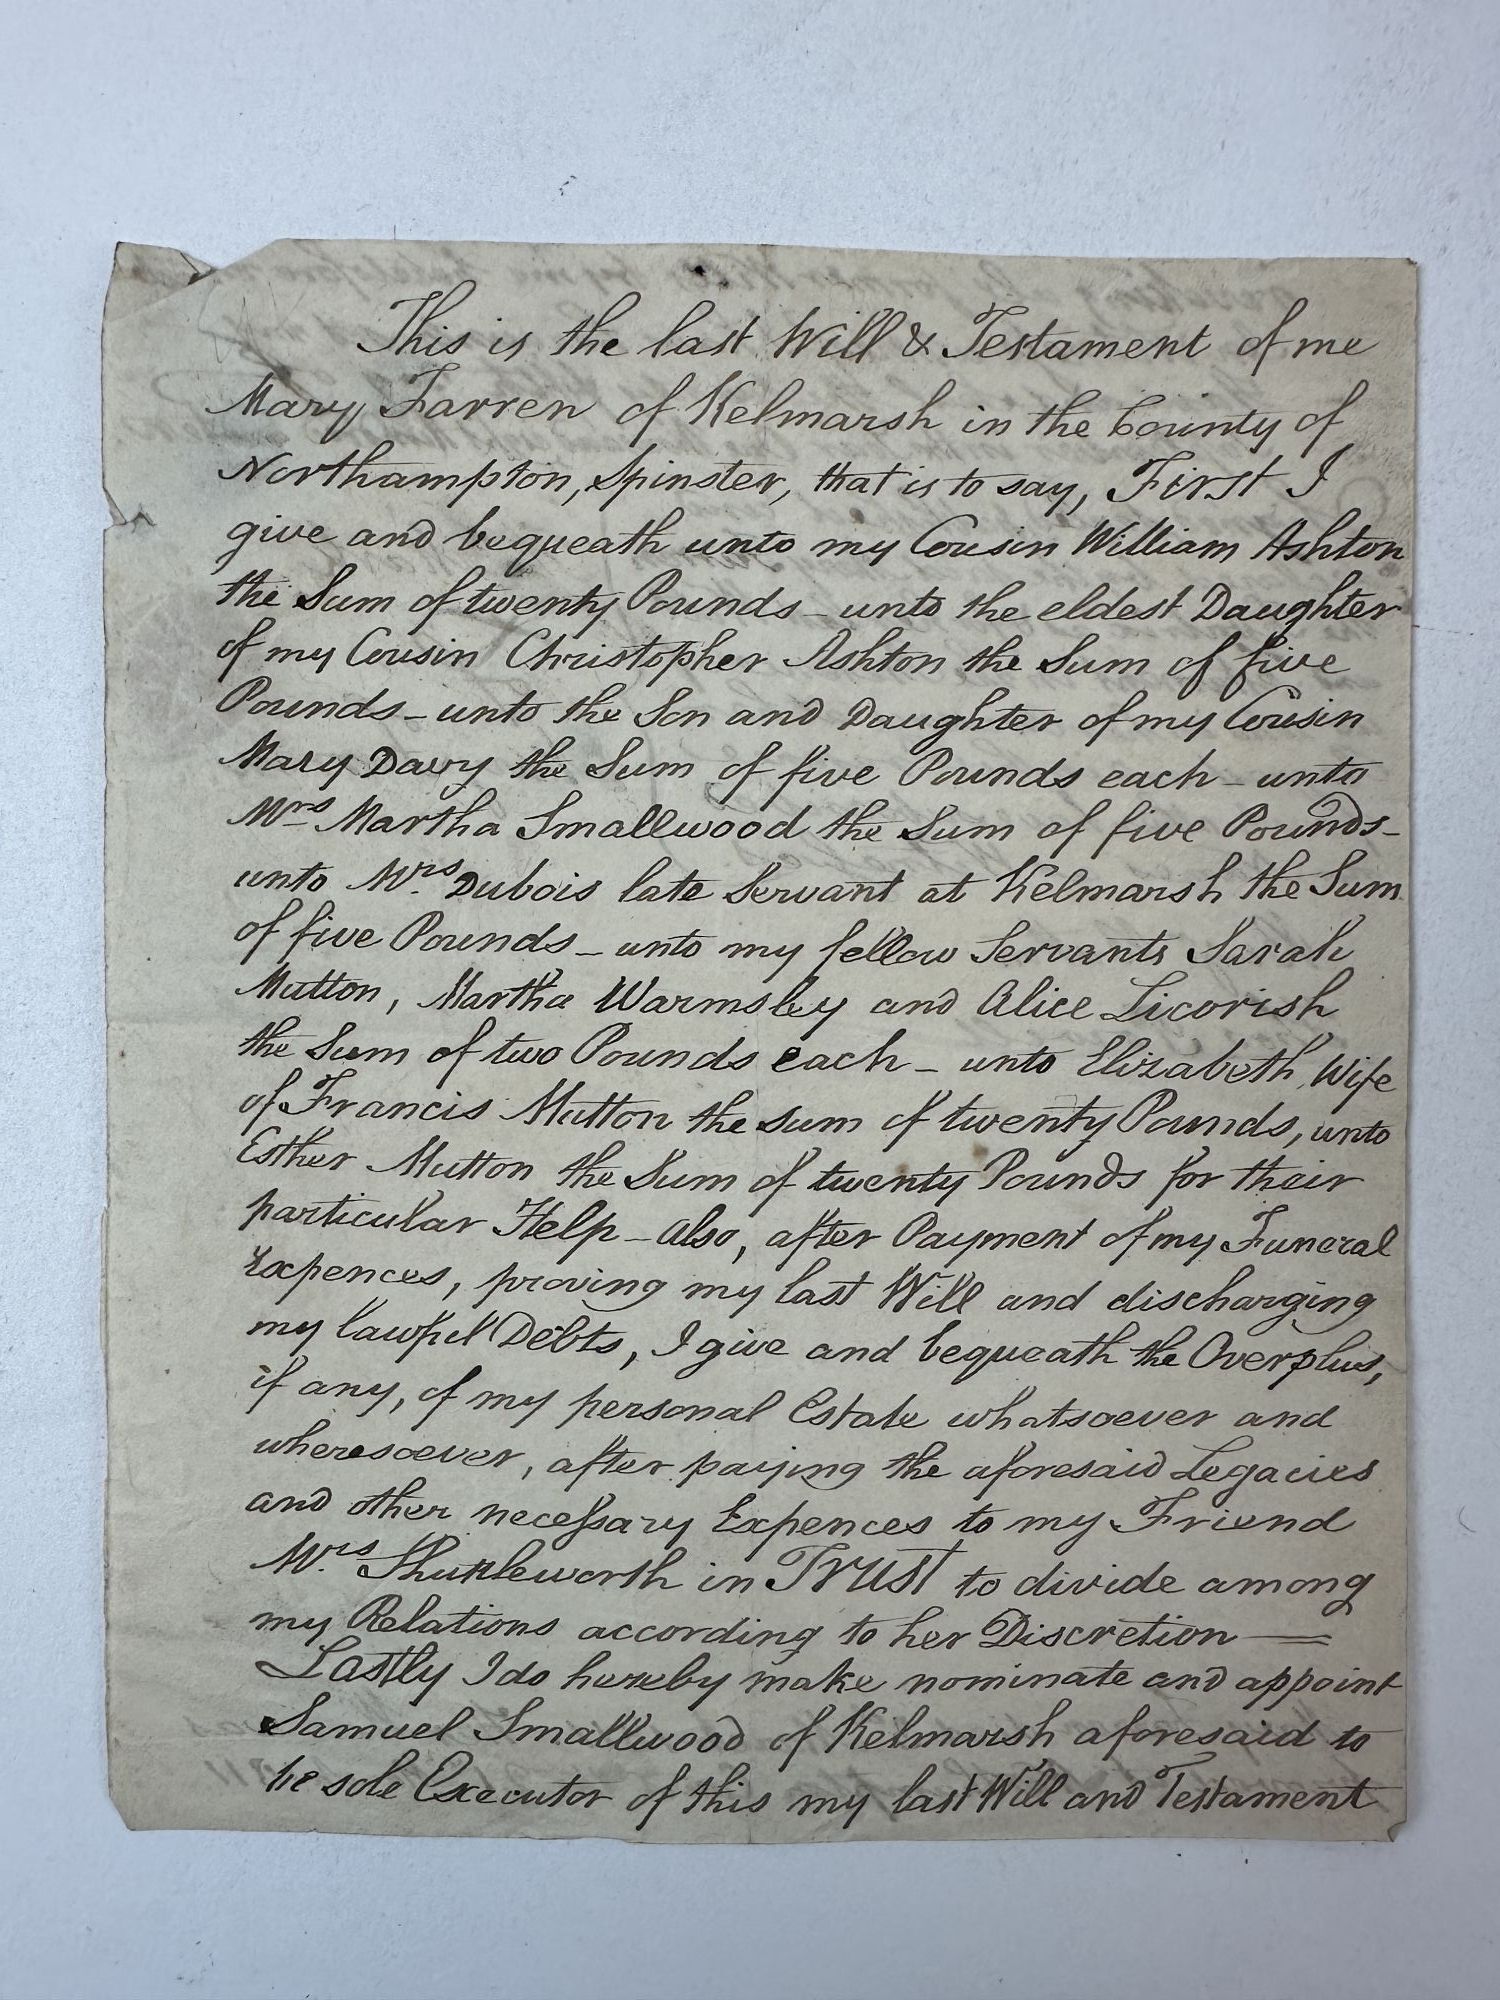 This is the last Will & Testament of me
Mary Farren of Kelmarsh in the County of
Northampton, Spinster, that is to say, First I
give and bequeath unto my Cousin William Ashton
the Sum of twenty Pounds - unto the eldest Daughter
of my Cousin Christopher Ashton the Sum of five
Pounds - unto the Son and Daughter of my Cousin
Mary Davy the Sum of five Pounds each - unto
Mrs Martha Smallwood the Sum of five Pounds -
unto Mrs. Dubois late Servant at Kelmarsh the Sum
of five Pounds - unto my fellow Servants Sarah
Mutton, Martha Warmsley and Alice Licorish
the Sum of two Pounds each - unto Elizabeth, Wife
of Francis Mutton the sum of twenty Pounds, unto
Esther Mutton the Sum of twenty Pounds for their
particular Help - Also, after Payment of my Funeral
Expences, proving my last Will and discharging
my lawful Debts, I give and bequeath the Overplus,
if any, of my personal Estate whatsoever and
wheresoever, after paying the aforesaid Legacies
and other necessary Expences to my Friend
Mrs. Shuttleworth in Trust to divide among
my Relations according to her Discretion —
Lastly I do hereby make nominate and appoint
Samuel Smallwood of Kelmarsh aforesaid to
be sole Executor of this my last Will and Testament